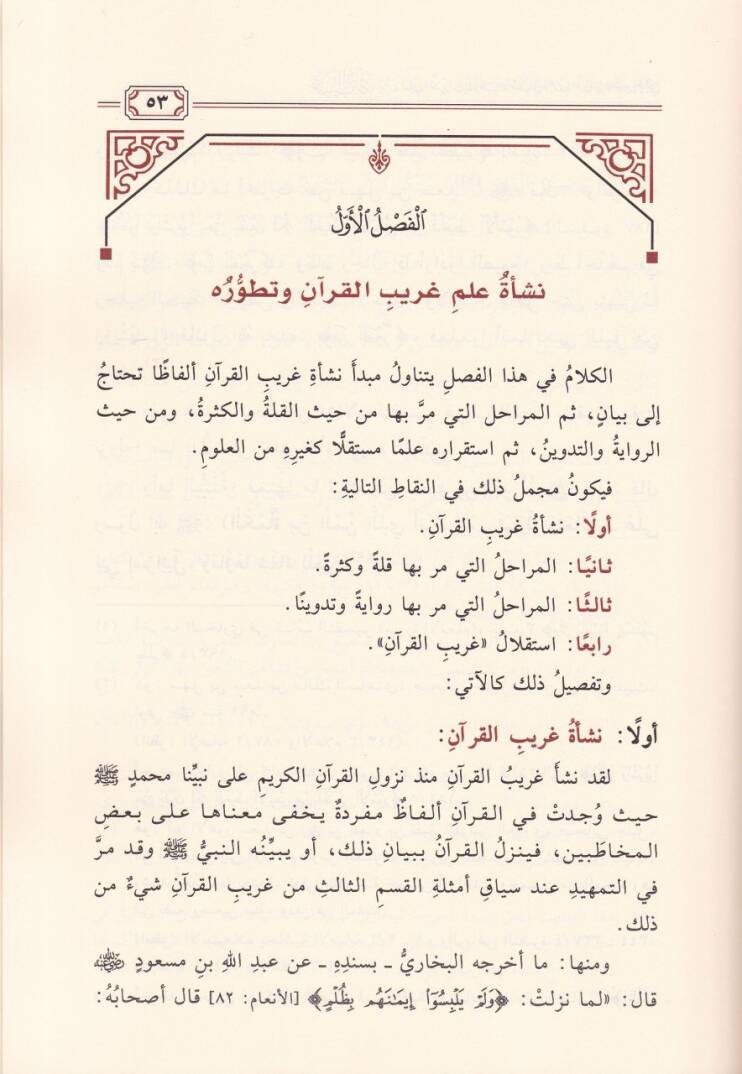 ٥٣
ٱلْفَصْلُ ٱلْأَوَّلُ
نشأةُ علمِ غريبِ القرآنِ وتطوُّرُه
الكلامُ في هذا الفصلِ يتناولُ مبدأَ نشأةِ غريبِ القرآنِ ألفاظًا تحتاجُ
إلى بيانٍ، ثم المراحل التي مرَّ بها من حيث القلةُ والكثرةُ، ومن حيث
الروايةُ والتدوينُ، ثم استقراره علمًا مستقلًّا كغيرِهِ من العلومِ.
فيكونُ مجملُ ذلك في النقاطِ التاليةِ:
أولًا: نشأةُ غريبِ القرآنِ.
ثانيًا: المراحلُ التي مر بها قلةً وكثرةً.
ثالثًا: المراحلُ التي مر بها روايةً وتدوينًا.
رابعًا: استقلالُ «غريبِ القرآنِ».
وتفصيلُ ذلك كالآتي:
أولًا: نشأةُ غريبِ القرآنِ:
لقد نشأَ غريبُ القرآنِ منذ نزولِ القرآنِ الكريمِ على نبيِّنا محمدٍ ﷺ
حيث وُجدتْ في القرآنِ ألفاظٌ مفردةٌ يخفى معناها على بعضِ
المخاطَبين، فينزلُ القرآنُ ببيانِ ذلك، أو يبيِّنُه النبيُّ ﷺ وقد مرَّ
في التمهيدِ عند سياقِ أمثلةِ القسمِ الثالثِ من غريبِ القرآنِ شيءٌ من
ذلك.
ومنها: ما أخرجه البخاريُّ ـ بسندِهِ ـ عن عبدِ اللهِ بنِ مسعودٍ رضي الله عنه
قال: «لما نزلتْ: ﴿وَلَمْ يَلْبِسُوٓا۟ إِيمَـٰنَهُم بِظُلْمٍ﴾ [الأنعام: ٨٢] قال أصحابُهُ: